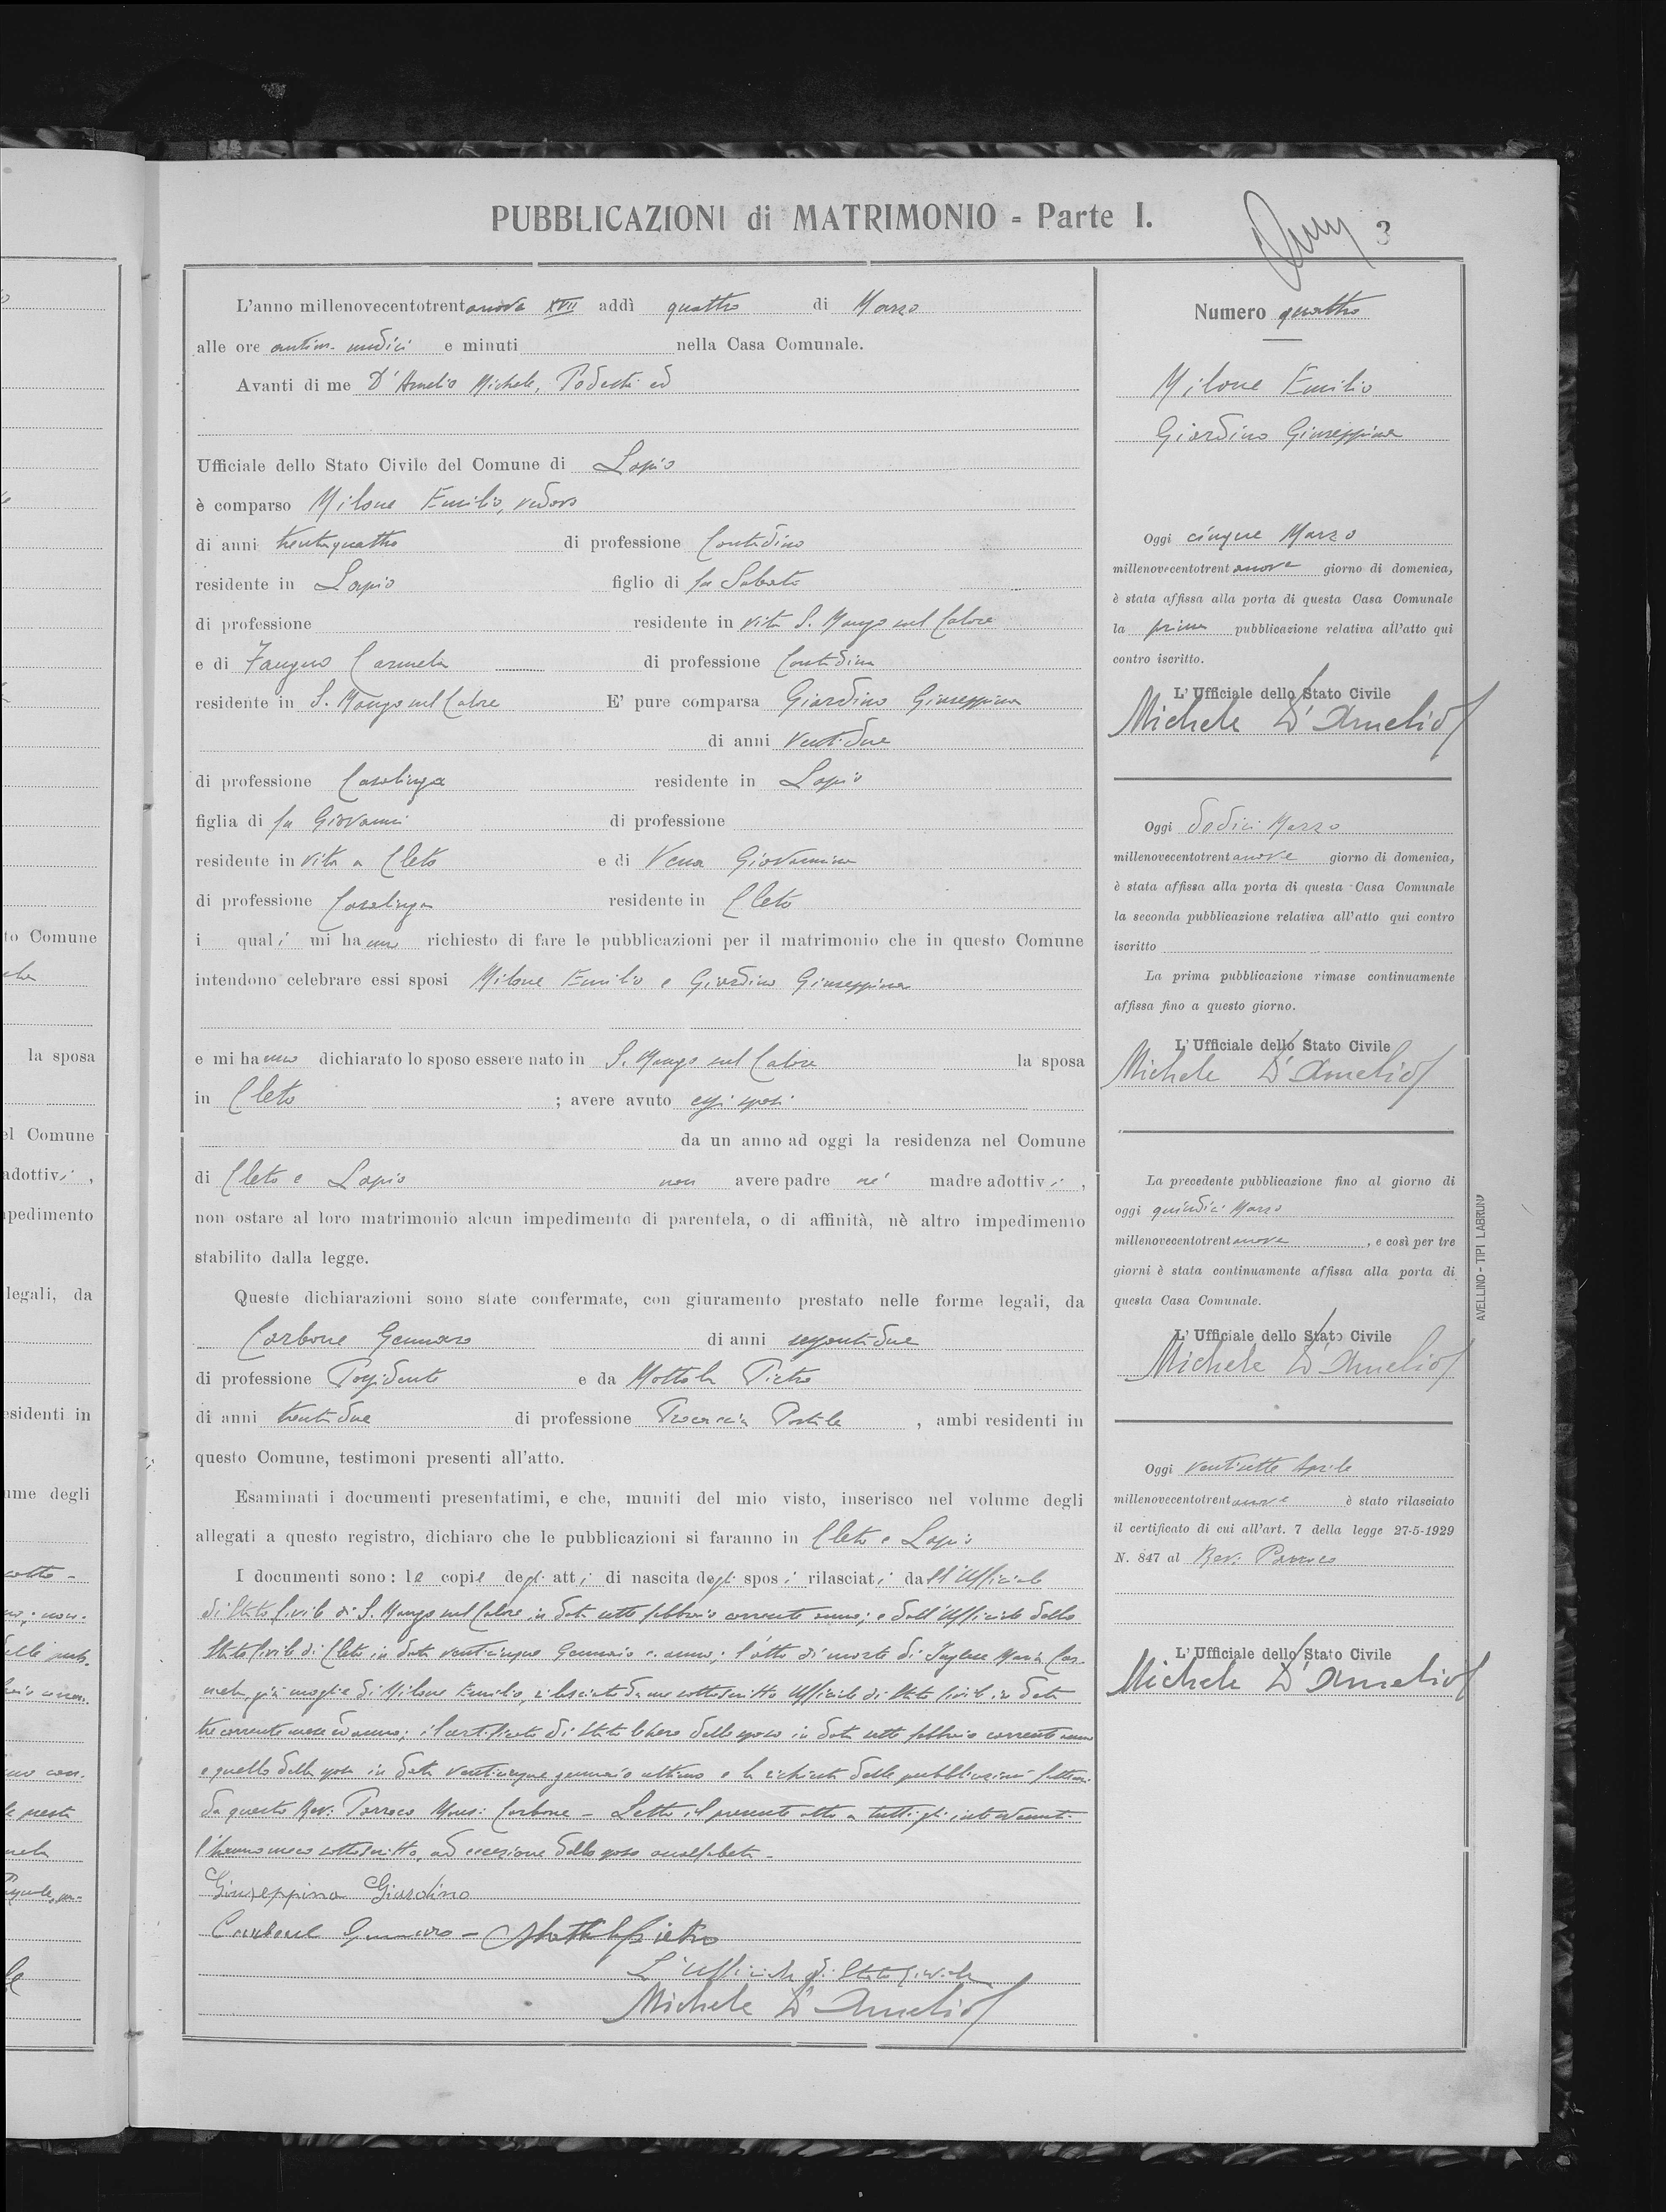 PUBBLICAZIONI di MATRIMONIO - Parte I.
3
L'anno millenovecentotrentanove XVII addì quattro di Marzo
alle ore antim. undici e minuti nella Casa Comunale.
Avanti di me D'Amelio Michele, Podestà ed
Ufficiale dello Stato Civile del Comune di Lapio
è comparso Milone Emilio, vedovo
di anni trentaquattro di professione Contadino
residente in Lapio figlio di fu Sabato
di professione residente in vita S. Mango sul Calore
e di Zanguo Carmela di professione Contadina
residente in S. Mango sul Calore E' pure comparsa Giardino Giuseppina
di anni Ventidue
di professione Casalinga residente in Lapio
figlia di fu Giovanni di professione
residente in vita a Cleto e di Vena Giovannina
di professione Casalinga residente in Cleto
i quali mi hanno richiesto di fare le pubblicazioni per il matrimonio che in questo Comune
intendono celebrare essi sposi Milone Emilio e Giardino Giuseppina
e mi hanno dichiarato lo sposo essere nato in S. Mango sul Calore la sposa
in Cleto ; avere avuto essi sposi
da un anno ad oggi la residenza nel Comune
di Cleto e Lapio non avere padre né madre adottivi ,
non ostare al loro matrimonio alcun impedimento di parentela, o di affinità, nè altro impedimento
stabilito dalla legge.
Queste dichiarazioni sono state confermate, con giuramento prestato nelle forme legali, da
Carbone Gennaro di anni sessantidue
di professione Possidente e da Mottola Pietro
di anni trentidue di professione Procaccia Postale , ambi residenti in
questo Comune, testimoni presenti all'atto.
Esaminati i documenti presentatimi, e che, muniti del mio visto, inserisco nel volume degli
allegati a questo registro, dichiaro che le pubblicazioni si faranno in Cleto e Lapio
I documenti sono: le copie degli atti di nascita degli sposi rilasciati dall'Ufficiale
di Stato Civile di S. Mango sul Calore in data sette febbraio corrente anno; e dall'Ufficiale dello
Stato Civile di Cleto in data venticinque Gennaio c. anno; l'atto di morte di Inglese Maria Car-
mela, già moglie di Milone Emilio, rilasciato da me sottoscritto Ufficiale di Stato Civile in data
tre corrente mese ed anno; il certificato di Stato libero dello sposo in data sette febbraio corrente anno
e quello della sposa in data venticinque gennaio ultimo e la richiesta delle pubblicazioni fattami
da questo Rev: Parroco Mons: Carbone - Letto il presente atto a tutti gli intervenuti
l'hanno meco sottoscritto, ad eccezione dello sposo analfabeta -
Giuseppina Giardino
Carbone Gennaro - Mottola Pietro
L'Ufficiale di Stato Civile
Michele D'Amelio
Numero quattro
Milone Emilio
Giardino Giuseppina
Oggi cinque Marzo
millenovecentotrentanove giorno di domenica,
è stata affissa alla porta di questa Casa Comunale
la prima pubblicazione relativa all'atto qui
contro iscritto.
L'Ufficiale dello Stato Civile
Michele D'Amelio
Oggi dodici Marzo
millenovecentotrentanove giorno di domenica,
è stata affissa alla porta di questa Casa Comunale
la seconda pubblicazione relativa all'atto qui contro
iscritto
La prima pubblicazione rimase continuamente
affissa fino a questo giorno.
L'Ufficiale dello Stato Civile
Michele D'Amelio
La precedente pubblicazione fino al giorno di
oggi quindici Marzo
millenovecentotrentanove , e così per tre
giorni è stata continuamente affissa alla porta di
questa Casa Comunale.
L'Ufficiale dello Stato Civile
Michele D'Amelio
Oggi ventisette Aprile
millenovecentotrentanove è stato rilasciato
il certificato di cui all'art. 7 della legge 27-5-1929
N. 847 al Rev: Parroco
L'Ufficiale dello Stato Civile
Michele D'Amelio
AVELLINO - TIPI LABRUNO
to Comune
la sposa
el Comune
adottivi ,
pedimento
legali, da
esidenti in
ume degli